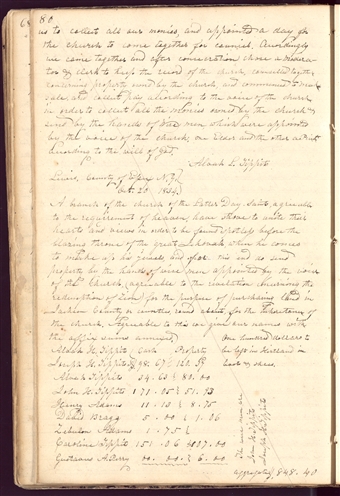 80
us to collect all our monies, and appointed a day for
the church to come together for counsel. Accordingly
we came together and after conversation chose a modera-
tor & clerk to keep the record of the church, consulted together
concerning property owned by the church, and
according to the voice of the church
in order to collect all the monies owned by the church &
send by the hands of wise men which were appointed
by the voice of the church, one Elder and the other a
according to the will of God,
Alvah L. Tippits
Lewis, County of Essex N.Y.
Oct. 20. 1834.
A branch of the church of the Latter Day Saints, agreeable
to the requirement of heaven have strove to unite their
hearts and in order to be found spotless before the
blazing throne of the great Jehovah when he comes
to make up his jewels, and after this and do send
property by the hands of wise men appointed by the voice
of the church, (agreeable to the revelation concerning the
redemption of Zion) for the purpose of purchasing land in
Jackson County or counties round about, for the inheritance of
the church. Agreeable to this we give our names with
the sums annexed.
Cash Property
Joseph H. Tippits 48.67
Alvah Tippits 34.63 80.00
John H. Tippits 171.05 51.93
Henry Adams 11.13 8.75
David Bragg 5.00 1.06
Zebulon Adams 1.75
Caroline Tippits 151.06
Gustavus A. Perry 00.00 6.00
One hundred dollars to
be left in Kirtland in
The wise men are
John H. Tippits
Joseph H. Tippits
Aggregating 848.40